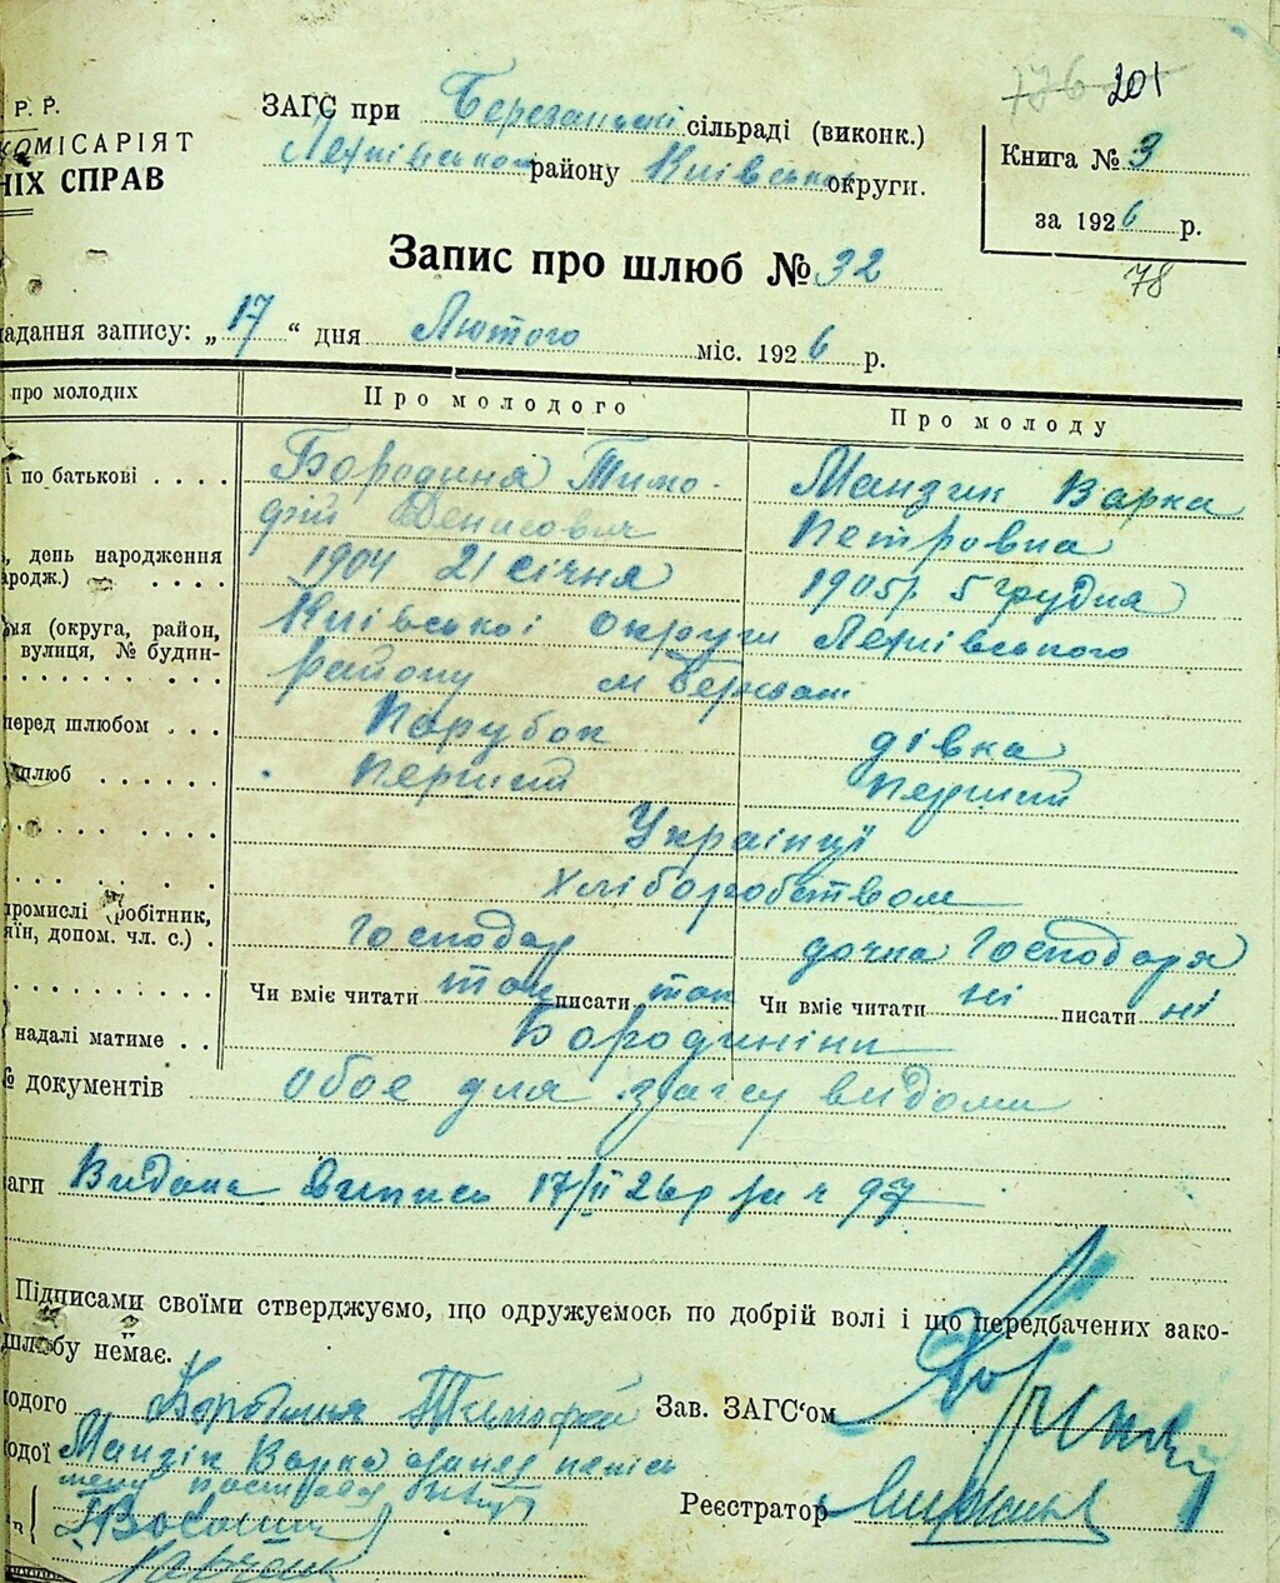 Р. Р.
КОМІСАРІЯТ
НІХ СПРАВ
ЗАГС при Березанській сільраді (виконк.)
району Київської округи.
176 201
Книга № 3
за 1926 р.
Запис про шлюб № 32
78
ладання запису: „17“ дня Лютого міс. 1926 р.
про молодих
Про молодого
Про молоду
і по батькові . . . .
Бородиня Тимо-
фій Денисович
Манзик Варка
Петровна
, день народження
народж.) . . . .
1904 21 січня
1905 р. 5 грудня
ця (округа, район,
вулиця, № будин-
Київської округи
району м Березань
перед шлюбом . . .
Парубок
дівка
шлюб . . . . . .
Перший
Перший
Українці
Хліборобством
промислі (робітник,
яїн, допом. чл. с.) .
Господар
дочка Господаря
Чи вміє читати так писати так
Чи вміє читати ні писати ні
надалі матиме . .
№ документів
обоє для загсу видоми
аги Видана Випись 17/II 26 р за № 97
Підписами своїми стверджуємо, що одружуємось по добрій волі і що передбачених зако-
шлюбу немає.
одого Бородиня Тимофій
Зав. ЗАГС‘ом
одої Манзік Варка
Реєстратор